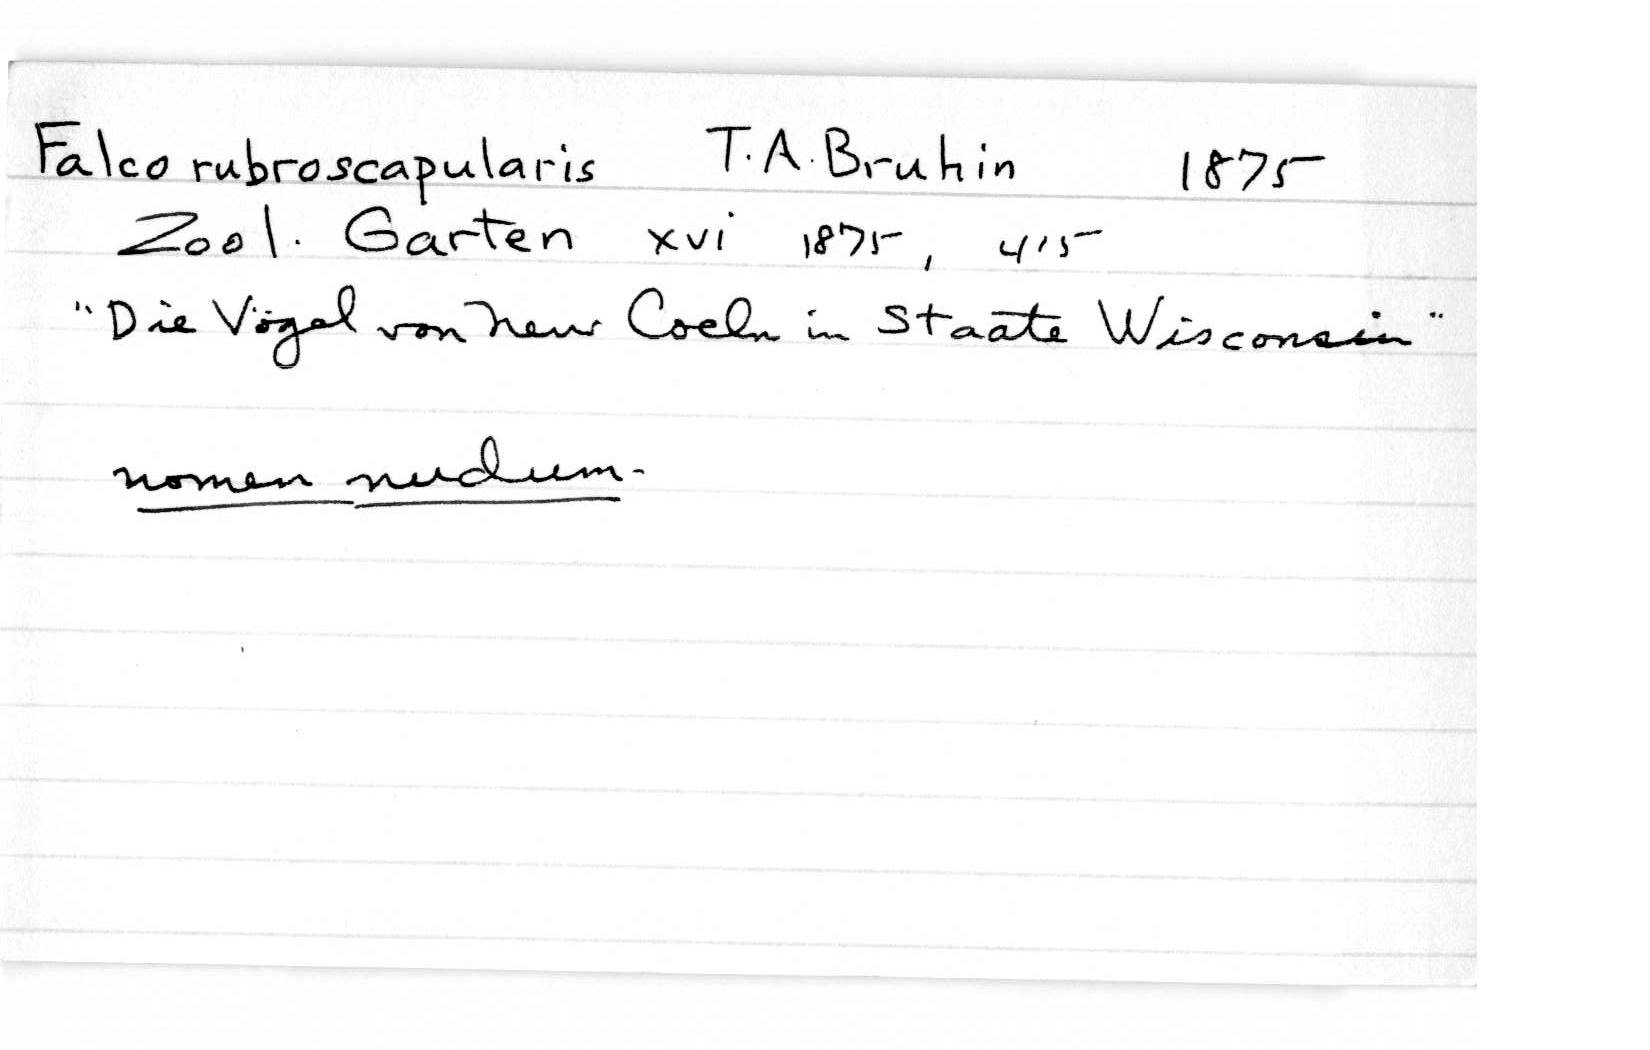 Falco rubroscapularis T.A. Bruhin 1875
Zool. Garten xvi 1875, 415
"Die Vögel von New Coeln in Staate Wisconsin"
nomen nudum.